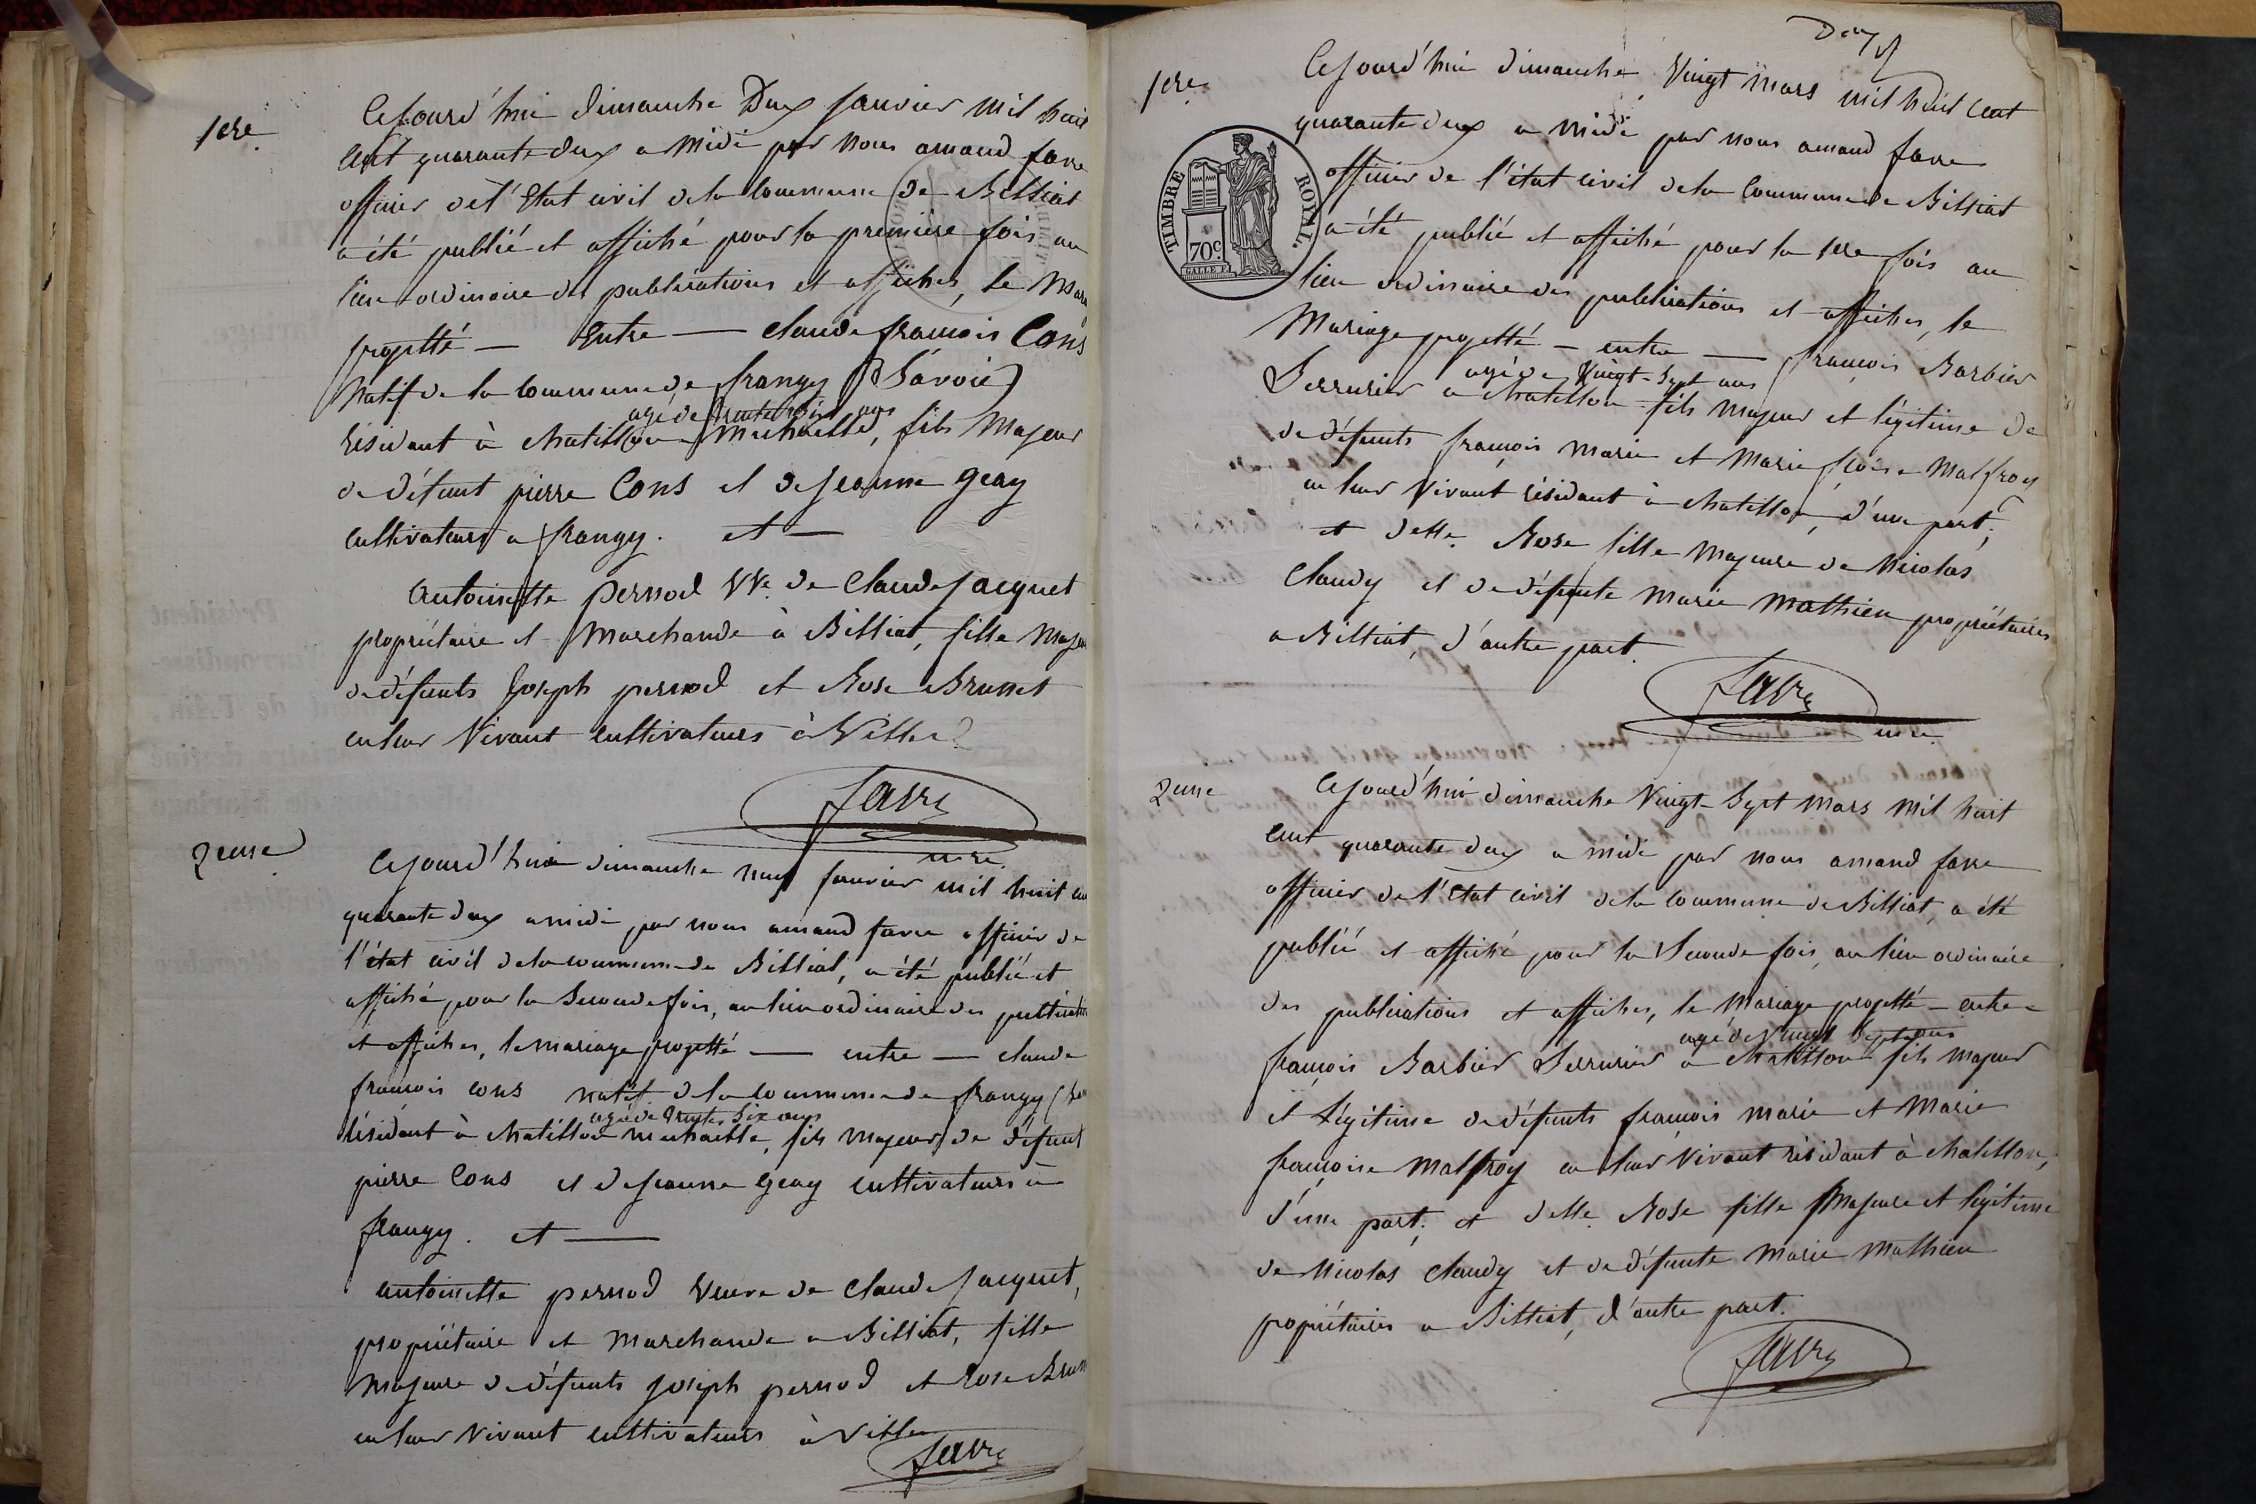 1ere
Cejourd'hui dimanche Deux janvier mil huit
cent quarante deux a midi par nous amand favre
officier de l'Etat civil de la commune de Billiat
a été publié et affiché pour la première fois au
lieu ordinaire des publications et affiches, le Mari
projetté — Entre — claude françois Cons
Natif de la commune de frangy (Savoie)
agé de trente six ans
résidant à chatillon Michaille, fils Majeur
de défunt pierre Cons et de jeanne geay
cultivateurs a frangy. et —
antoinette pernod Vve. de Claude jacquet
propriétaire et Marchande à Billiat, fille Majeu
de défunts Joseph pernod et Rose Brunet
en leur Vivant cultivateurs à Ville
favre
mre.
2eme
Cejourd'hui dimanche neuf janvier mil huit cen
quarante deux a midi par nous amand favre officier de
l'état civil de la commune de Billiat, a été publié et
affiché pour la Seconde fois, au lieu ordinaire des publications
et affiches, le mariage projetté — entre — claude
françois cons natif de la commune de frangy
agé de trente Six ans
résidant à chatillon michaille, fils majeur de défunt
pierre Cons et de jeanne geay cultivateurs à
frangy. et —
antoinette pernod Veuve de Claude jacquet,
propriétaire et Marchande a Billiat, fille
Majeure de défunts joseph pernod et Rose Brun
en leur Vivant cultivateurs à Ville
favre
1ere
Cejourd'hui dimanche Vingt Mars mil huit Cent
quarante deux a midi par nous amand favre
officier de l'état civil de la Commune de Billiat
a été publié et affiché pour la 1ere fois au
lieu ordinaire des publications et affiches, le
Mariage projetté — entre — françois Barbier
agé de Vingt-Sept ans
Serrurier a chatillon fils majeur et légitime de
de défunts françois marie et Marie Malfroy
en leur Vivant résidant à chatillon, d'une part;
et delle. Rose fille majeure de Nicolas
Claudy et de défunte Marie Mathieu propriétaires
a Billiat, d'autre part.
favre
mre.
2eme
Cejourd'hui dimanche Vingt-Sept Mars mil huit
cent quarante deux a midi par nous amand favre
officier de l'Etat civil de la commune de Billiat, a été
publié et affiché pour la Seconde fois, au lieu ordinaire
des publications et affiches, le Mariage projetté — entre —
agé de Vingt Sept ans
françois Barbier Serrurier a chatillon fils majeur
et légitime de défunts françois marie et Marie
françoise Malfroy en leur Vivant résidant à chatillon,
d'une part; et delle. Rose fille Majeure et légitime
de Nicolas Claudy et de défunte Marie Mathieu
propriétaires a Billiat, d'autre part.
favre
TIMBRE ROYAL.
70c.